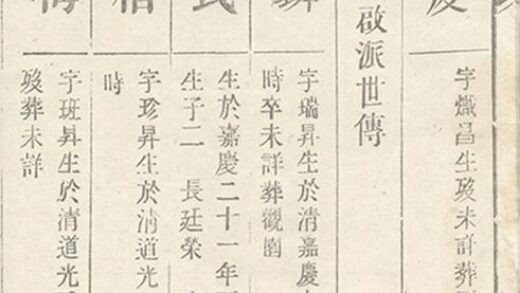 字熾昌生歿未詳葬
啟派世傳
字瑞昇生於清嘉慶
時卒未詳葬觀園
氏
生於嘉慶二十一年
生子二 長廷榮
字珍昇生於清道光
時
字班昇生於清道光
歿葬未詳